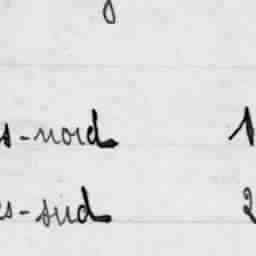 s-nord 1
es-sud 2